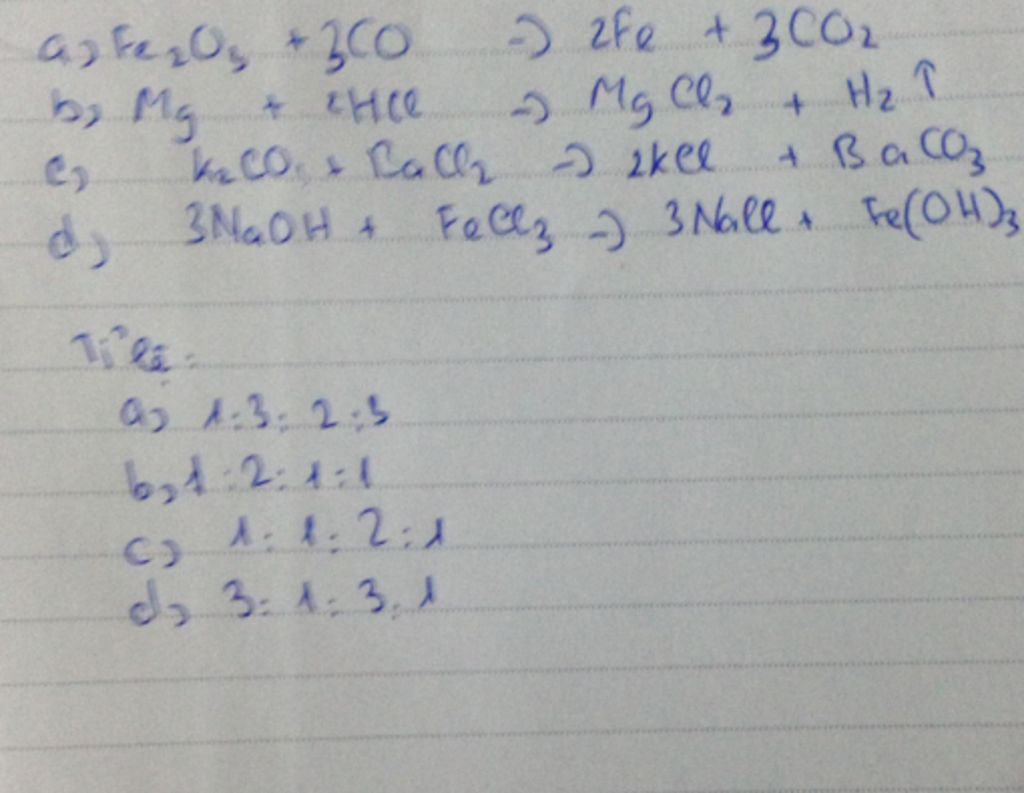 a) Fe₂O₃ + 3CO → 2Fe + 3CO₂
b) Mg + 2HCl → MgCl₂ + H₂ ↑
c) K₂CO₃ + BaCl₂ → 2KCl + BaCO₃
d) 3NaOH + FeCl₃ → 3NaCl + Fe(OH)₃
Tỉ lệ:
a) 1:3:2:3
b) 1:2:1:1
c) 1:1:2:1
d) 3:1:3:1